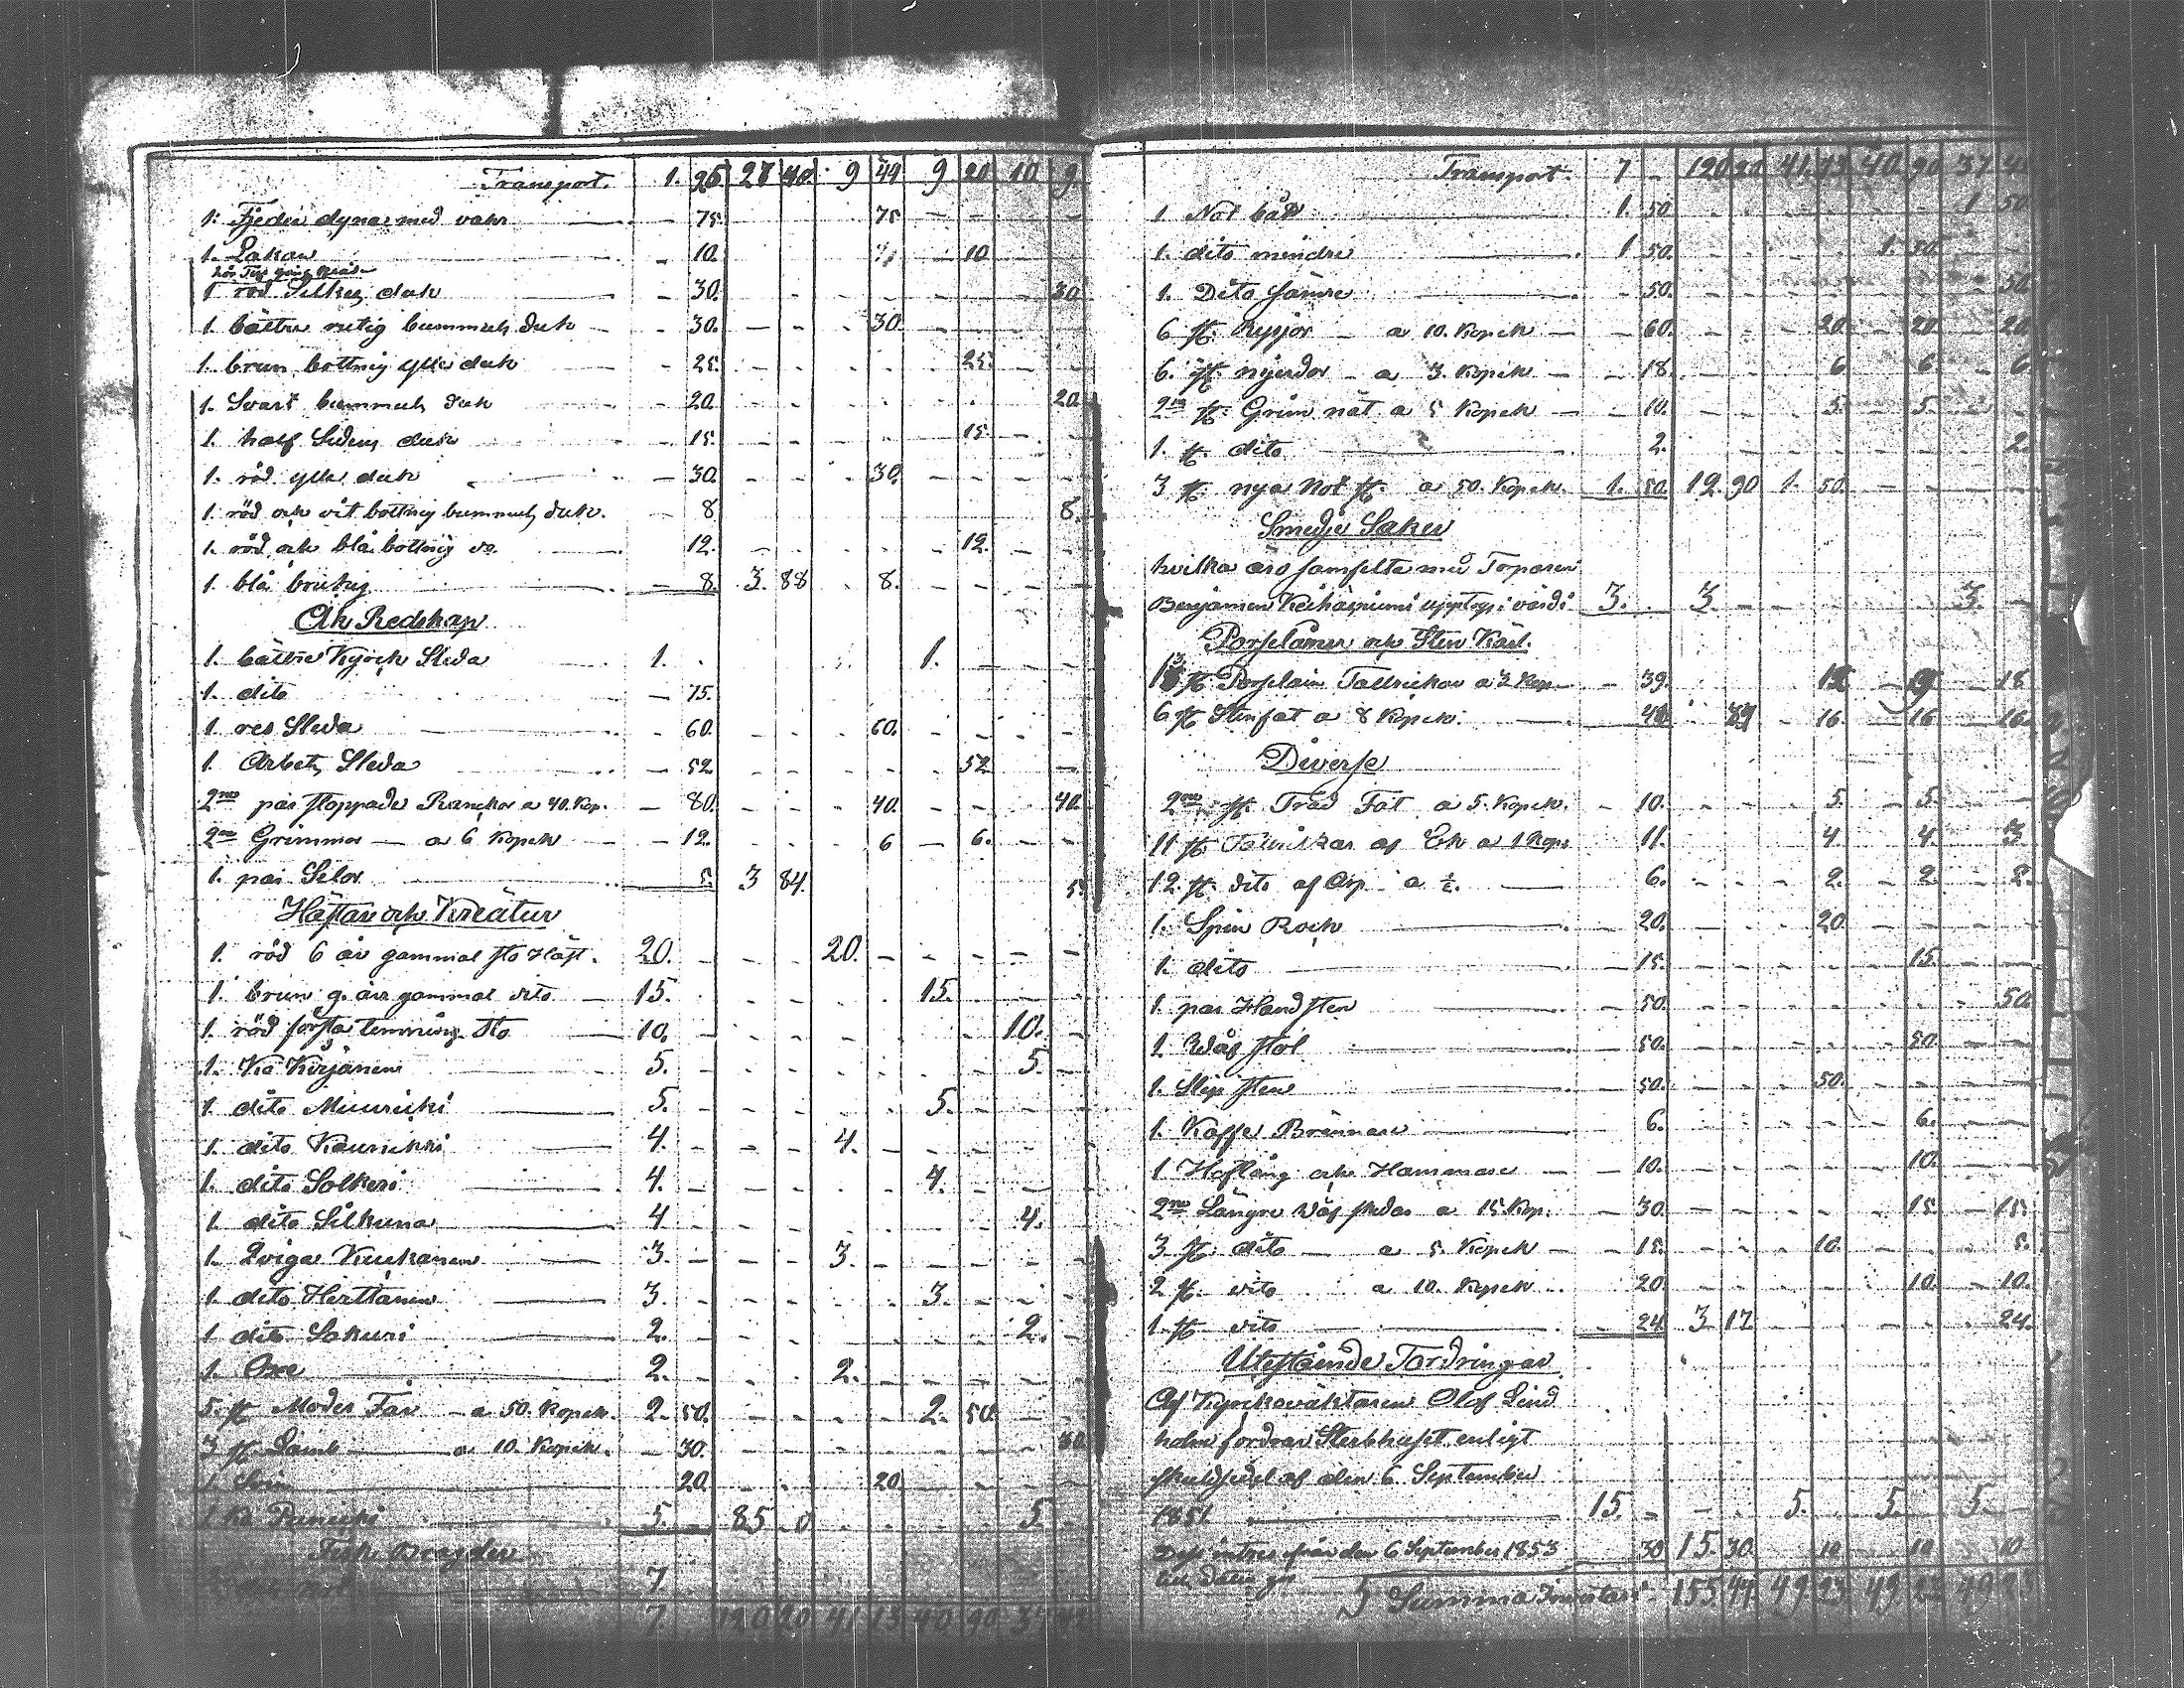 Transport. 1. 25. 27 40. 9 49 9 20 10 9.
1. Fjeder dyna med vahr — 75. 75 — — — —
1. Lakan — 10. 10 — —
1 röd Silkes duk — 30. 30
1. bättre rutig bummuls duk — 30. 30.
1. brun bottnig ylle duk — 25. 25.
1. Svart bummuls duk — 20. 20.
1. half Sidens duk — 15. 15.
1. röd ylle duk — 30. 30.
1. röd och vit bottnig bummuls duk. — 8. 8.
1. röd och blå bottnig do. — 12. 12.
1. blå brukig — 8. 3. 88 8.
Åk Redskap
1. bättre Kyrck Släda 1. 1.
1. dito — 75.
1. res Släda — 60. 60.
1 Arbets Släda — 52 52
2ne par stoppade Ranckor a 40. Kop. — 80. 40. 40.
2ne Grimmor — a 6 Kopek — 12. 6 — 6.
1. par Selor 5. 3 84. 5.
Hästar och Kreatur
1. röd 6 år gammal sto Häst. 20. 20.
1. brun 9. års gammal dito — 15. 15.
1. röd första temnings Sto 10. 10.
1. Ko Kirjanen 5. 5.
1 dito Muuricki 5. 5.
1. dito Kaunikki 4. 4.
1. dito Solkeri 4. 4.
1 dito Silkuna 4 4.
1. Qviga Kuckanen 3. 3.
1 dito Herttanen 3. 3.
1 dito Sakuri 2. 2.
1. Oxe 2. 2.
5. st Moder Får — a 50. Kopek. 2. 50. 2. 50.
3 st. Lamb a 10. Kopek. — 30. 30
1. Svin 20. 20.
1 Ko 5. 85 0 5.
Fisk Bragder
7
7. 120 20 41 13 40 90 37 42
Transport. 7 — 120 20 41. 13. 40. 90 37 4
1 Not båt 1. 50. 1 50
1. dito mindre 1 50. 1. 50.
1. Dito sämre — 50. 50.
6 st. Ryssjor — a 10. Kopek — 60. 20. 20. 20
6. st. — a 3. Kopek — 18. 6 6. 6
2ne st. Grim nät a 5 Kopek — 10. 5. 5.
1. st. dito 2. 2.
3 st. nya Not st. a 50. Kopek. 1. 50. 12. 90 1. 50.
Smedje Saker
hvilka äro samfelta med Torparen
Benjamin upptogs i värde 3. 3. 3.
Porslaner och Sten Kärl.
13 st. Porslain Tallrickar a 3 Kop — 39. 12 9 18
6 st Stenfat a 8 Kopek. 48 87 16. 16 16.
Diverse
2ne st. Träd Fat a 5. Kopek. — 10. 5. 5.
11 st Tallrikar af Ek a 1 Kop. 11. 4. 4. 3
12. st. dito af Asp a ½. 6. 2. 2. 2.
1. Spin Rock — 20. 20.
1. dito — 15. 15.
1 par Hand sten — 50. 50.
1. Wäf stol — 50. 50.
1. Slip sten — 50. 50.
1. Kaffe Brännare — 6. 6.
1 Hoftång och Hammare — 10. 10.
2ne Längre Wäf skedar a 15 Kop. — 30. 15. 15.
3 st. dito — a 5. Kopek — 15. 10. 5.
2 st. dito a 10. Kopek 20. 10. 10.
1 st. dito 24. 3 17. 24.
Utestående Fordringar
Af Kyrckoväktaren Olof Lind
holm fordrar Sterbhuset enligt
skuldsedel af den 6 September
1851. 15. 5. 5. 5.
Dess intresse från den 6 September 1853 30 15. 30. 10 10 10
till dato gör
Summa Inventari. 155. 44. 49. 23. 49. 23 49 23